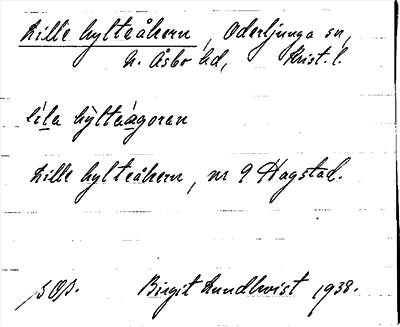 Lille hylteåkern, Oderljunga sn,
N. Åsbo hd, Krist. l.
líla hỳlteágoran
Lille hylteåkern, nr 9 Hagstad.
Birgit Lundkvist 1938.